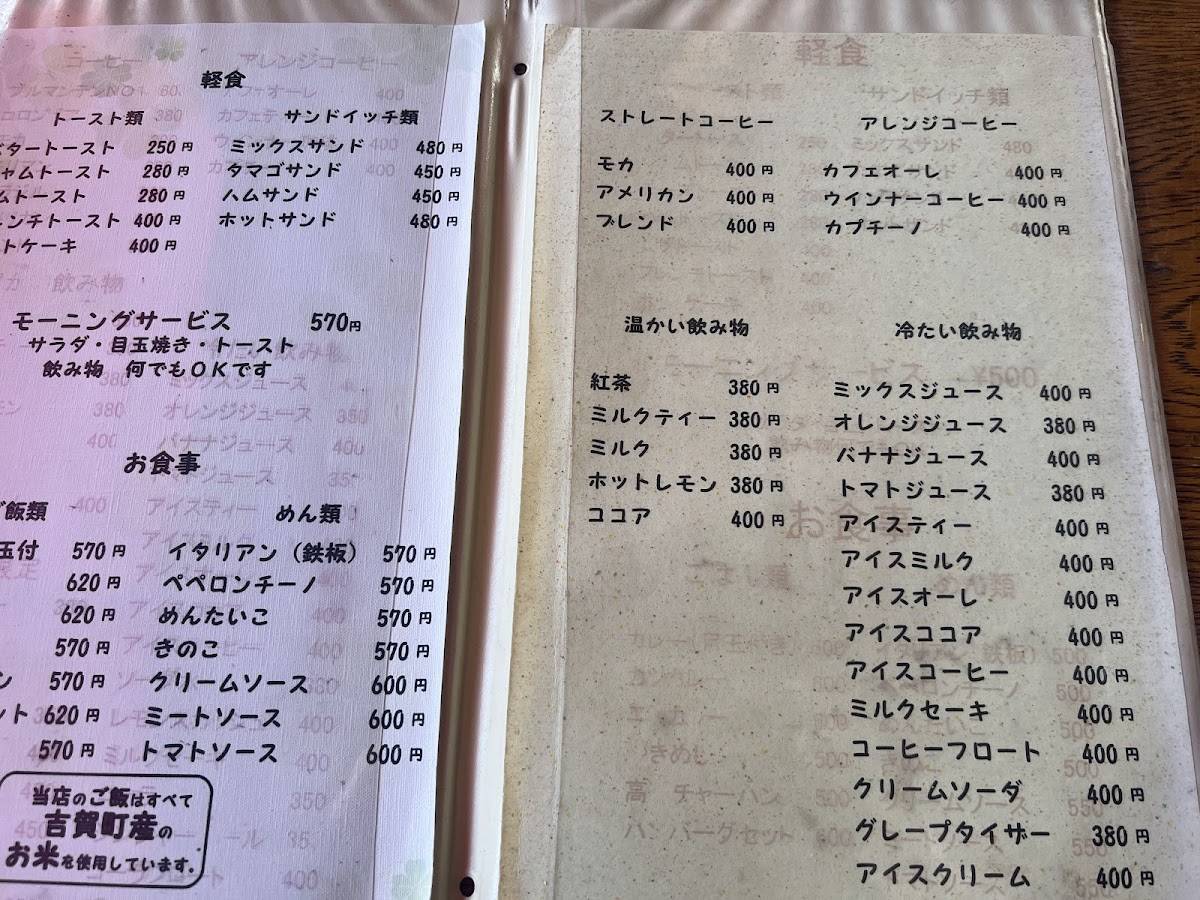 軽食
トースト類
サンドイッチ類
タートースト 250円
ミックスサンド 480円
ャムトースト 280円
タマゴサンド 450円
ムトースト 280円
ハムサンド 450円
ンチトースト 400円
ホットサンド 480円
トケーキ 400円
モーニングサービス 570円
サラダ・目玉焼き・トースト
飲み物 何でもOKです
お食事
飯類
めん類
玉付 570円
イタリアン(鉄板) 570円
620円
ペペロンチーノ 570円
620円
めんたいこ 570円
570円
きのこ 570円
ン 570円
クリームソース 600円
ット 620円
ミートソース 600円
570円
トマトソース 600円
当店のご飯はすべて
吉賀町産の
お米を使用しています。
ストレートコーヒー
アレンジコーヒー
モカ 400円
カフェオーレ 400円
アメリカン 400円
ウインナーコーヒー 400円
ブレンド 400円
カプチーノ 400円
温かい飲み物
冷たい飲み物
紅茶 380円
ミックスジュース 400円
ミルクティー 380円
オレンジジュース 380円
ミルク 380円
バナナジュース 400円
ホットレモン 380円
トマトジュース 380円
ココア 400円
アイスティー 400円
アイスミルク 400円
アイスオーレ 400円
アイスココア 400円
アイスコーヒー 400円
ミルクセーキ 400円
コーヒーフロート 400円
クリームソーダ 400円
グレープタイザー 380円
アイスクリーム 400円